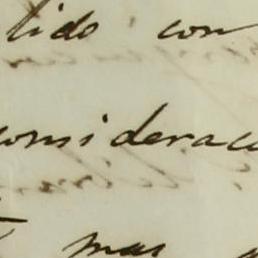 lido con
considerac
mas